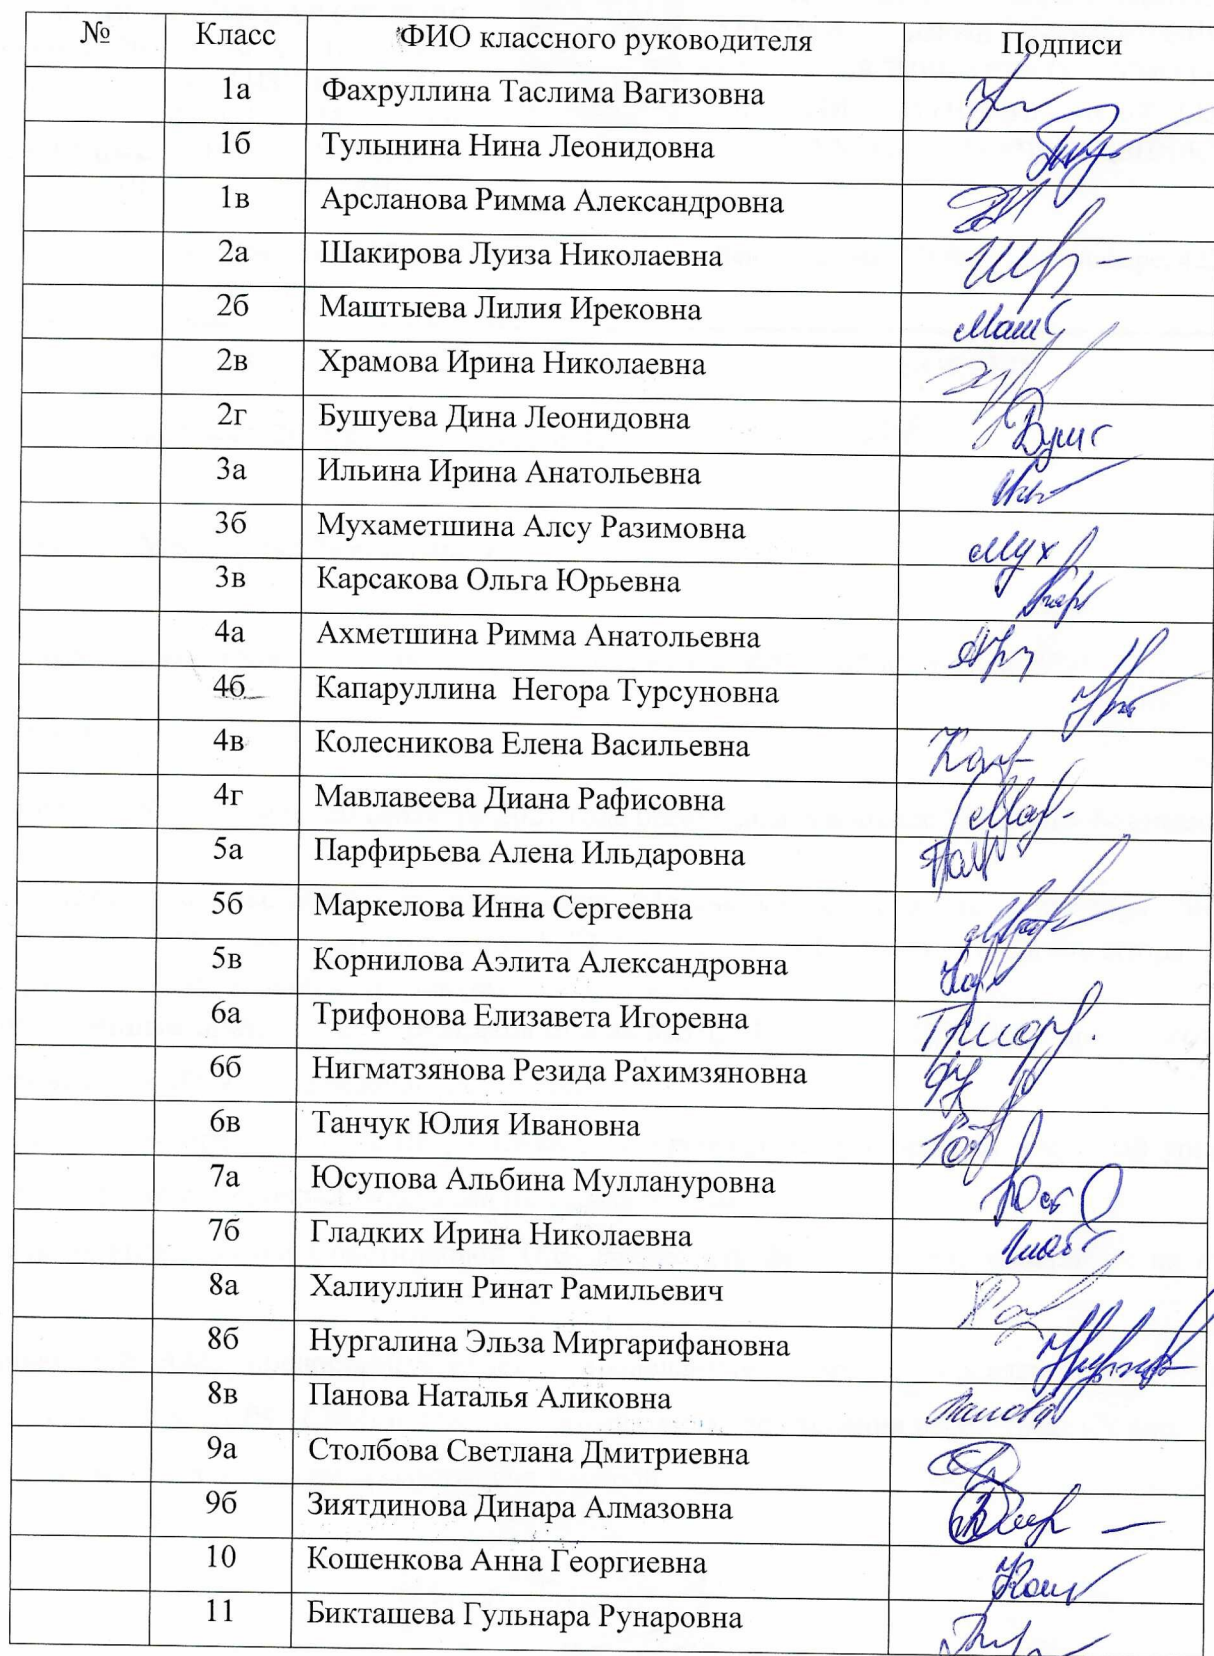 № Класс ФИО классного руководителя Подписи
1а Фахруллина Таслима Вагизовна
1б Тулынина Нина Леонидовна
1в Арсланова Римма Александровна
2а Шакирова Луиза Николаевна
2б Маштыева Лилия Ирековна
2в Храмова Ирина Николаевна
2г Бушуева Дина Леонидовна
3а Ильина Ирина Анатольевна
3б Мухаметшина Алсу Разимовна
3в Карсакова Ольга Юрьевна
4а Ахметшина Римма Анатольевна
4б Капаруллина Негора Турсуновна
4в Колесникова Елена Васильевна
4г Мавлавеева Диана Рафисовна
5а Парфирьева Алена Ильдаровна
5б Маркелова Инна Сергеевна
5в Корнилова Аэлита Александровна
6а Трифонова Елизавета Игоревна
6б Нигматзянова Резида Рахимзяновна
6в Танчук Юлия Ивановна
7а Юсупова Альбина Муллануровна
7б Гладких Ирина Николаевна
8а Халиуллин Ринат Рамильевич
8б Нургалина Эльза Миргарифановна
8в Панова Наталья Аликовна Панова
9а Столбова Светлана Дмитриевна
9б Зиятдинова Динара Алмазовна
10 Кошенкова Анна Георгиевна
11 Бикташева Гульнара Рунаровна